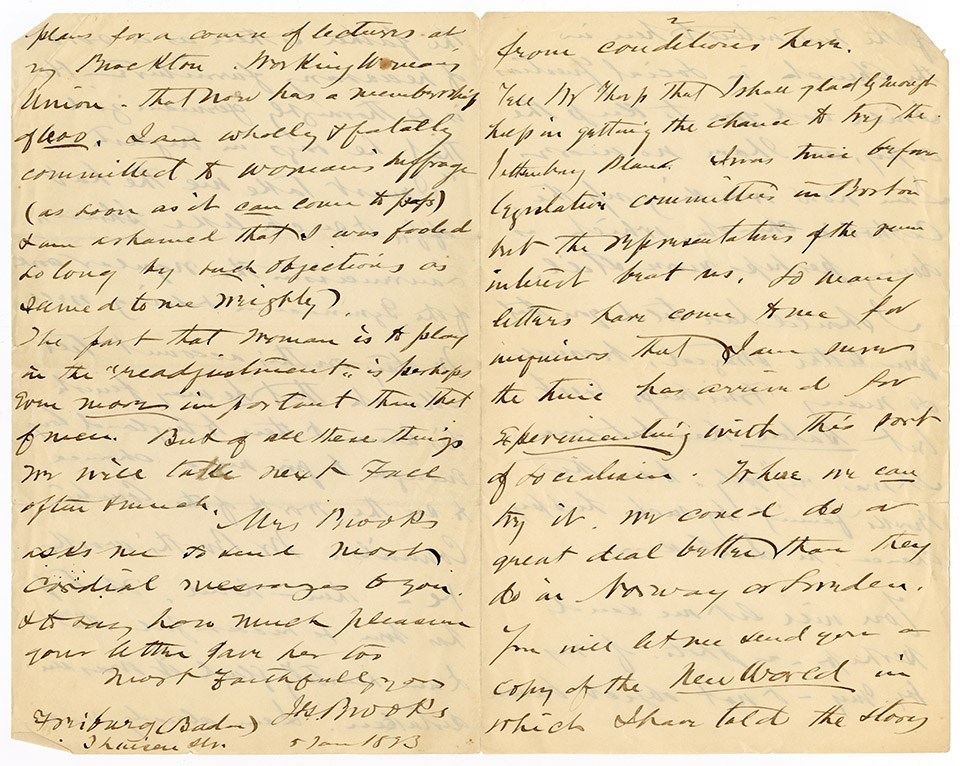 plans for a course of lectures at
my Brockton Working Woman's
Union - that now has a membership
of 400. I am wholly & fatally
committed to woman's suffrage
(as soon as it can come to pass)
& am ashamed that I was fooled
so long by such objections as
seemed to me weighty)
The part that woman is to play
in the "readjustment" is perhaps
even more important than that
of men. But of all these things
we will talk next Fall
after lunch.
Mrs Brooks
asks me to send most
cordial messages to you
& to say how much pleasure
your letter gave her too
Most faithfully yrs
J G Brooks
Freiburg (Baden)
str. 5 Jan 1893
2
from conditions here.
Tell Mr Thorp that I shall gladly enough
help in getting the chance to try the
Gothenburg Plan. I was twice before
legislative committees in Boston
but the representatives of the rum
interest beat us. So many
letters have come to me for
inquiries that I am sure
the time has arrived for
experimenting with this sort
of socialism. Where we can
try it. we could do a
great deal better than they
do in Norway or Sweden.
You will let me send you a
copy of the New World in
which I have told the story